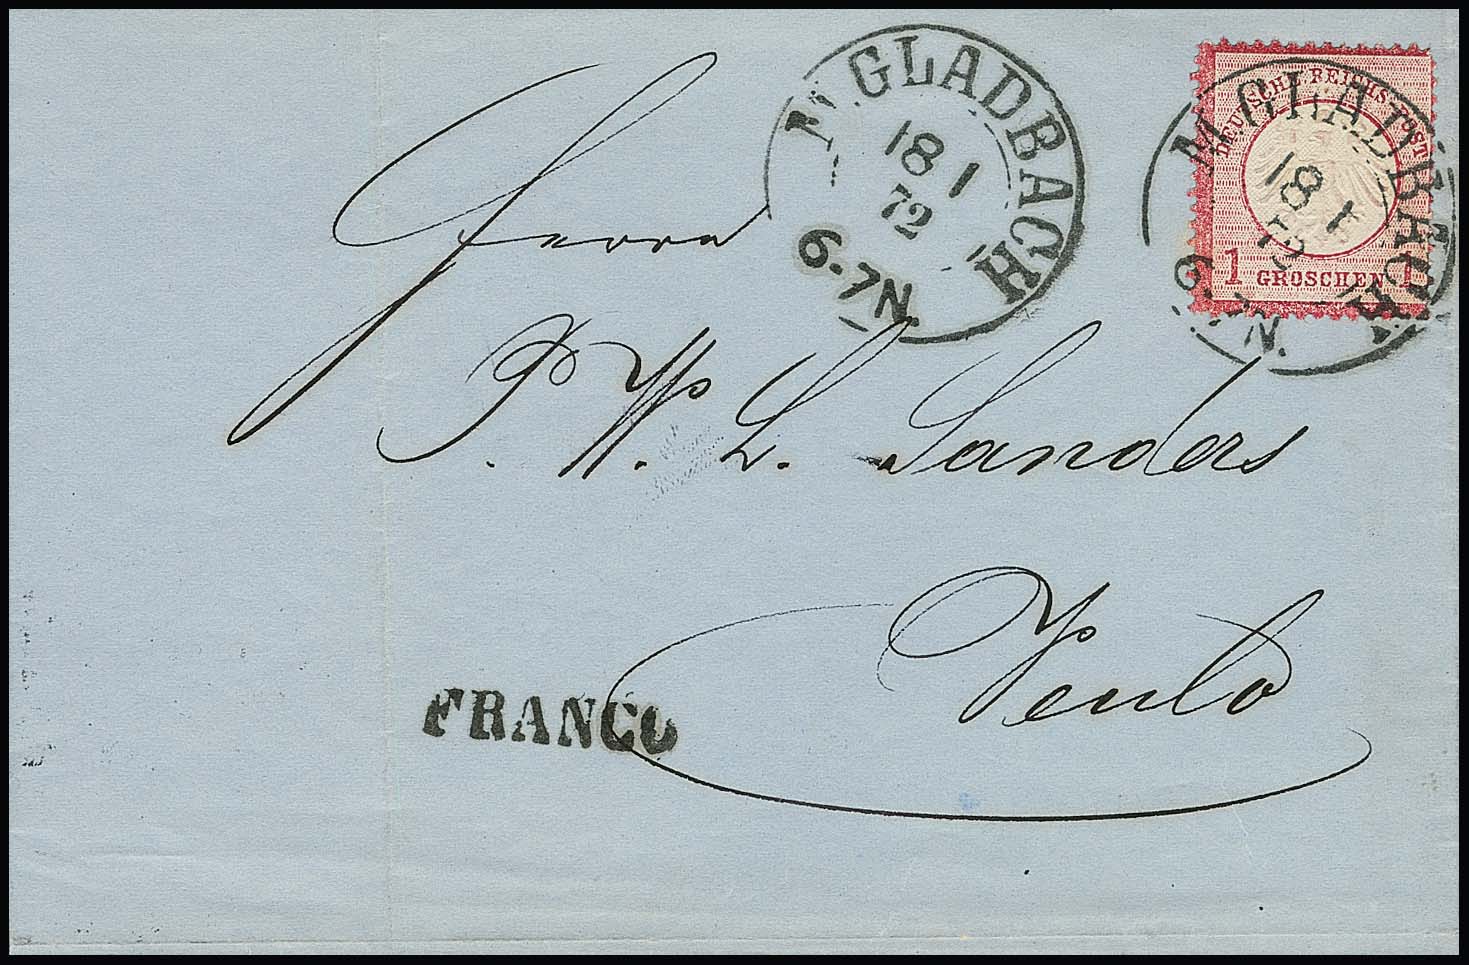 M. GLADBACH
18 1
72
6-7N.
DEUTSCHE REICHS-POST
1 GROSCHEN 1
M. GLADBACH
18 1
72
6-7N.
Herrn
P. W. L. Sanders
Venlo
FRANCO